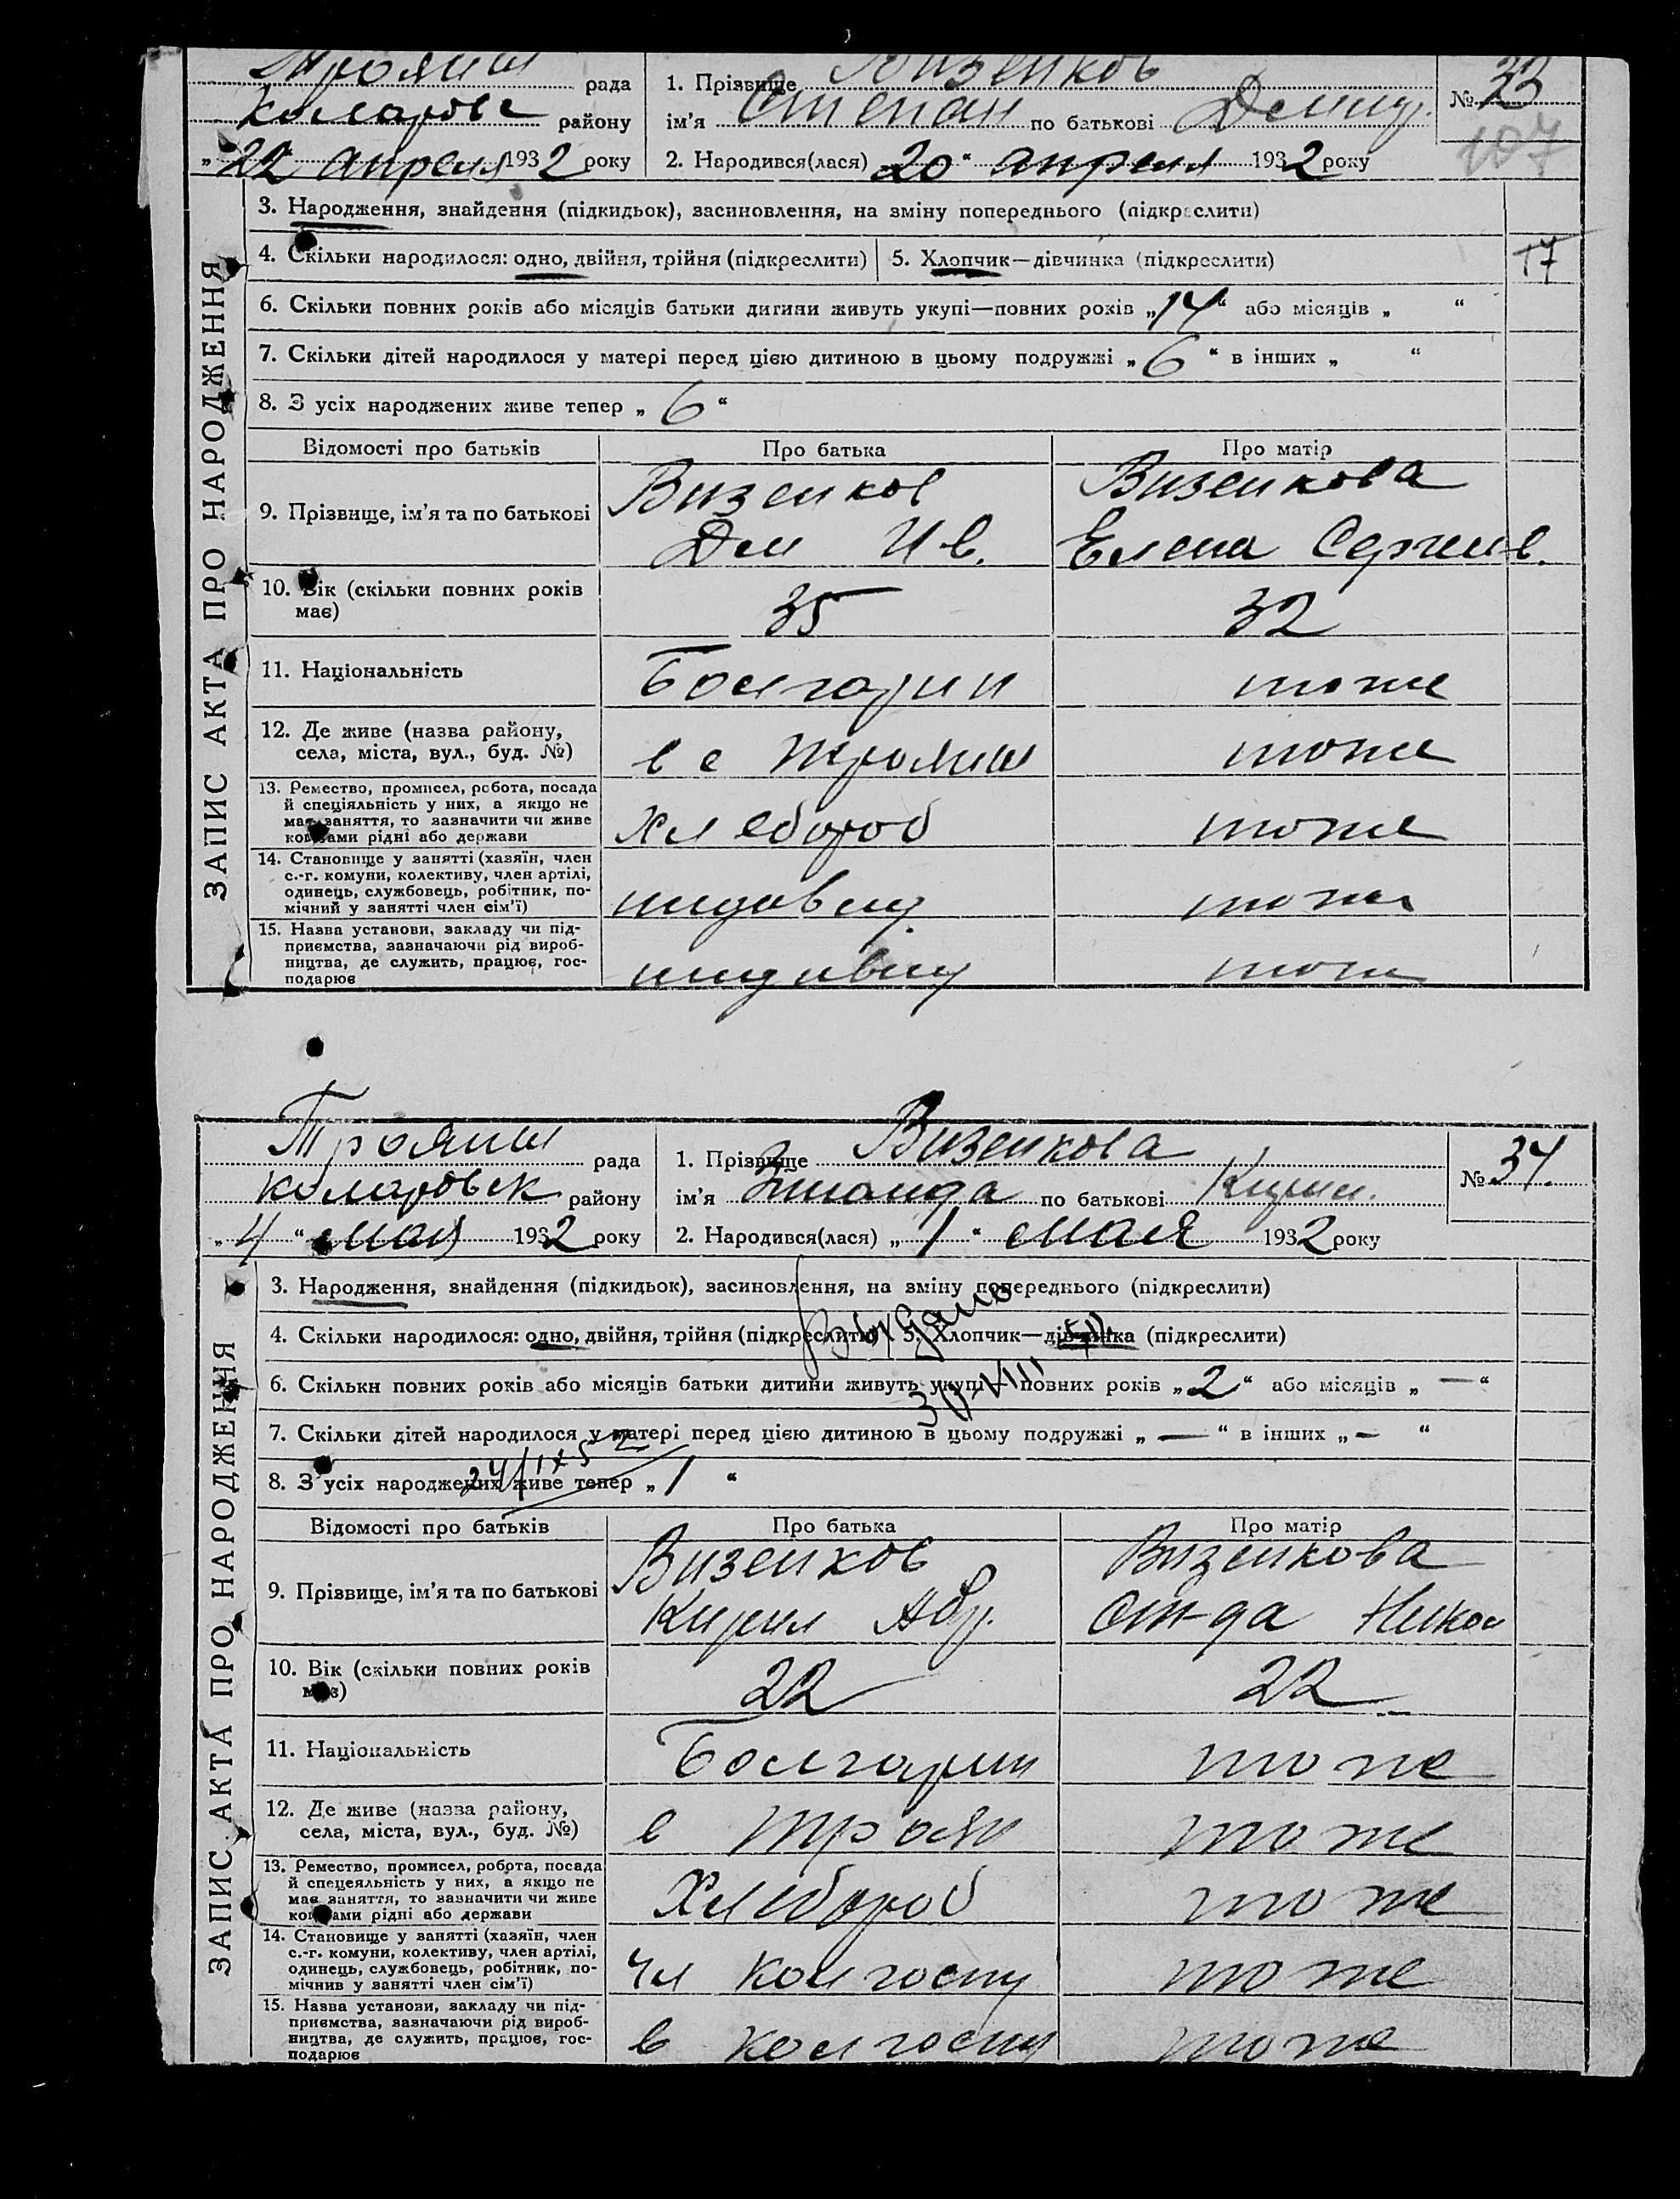 Троянш рада
Коларовс району
„22 апреля 1932 року
1. Прізвище Визенков
ім’я Степан по батькові Демид.
2. Народився(лася) „20“ апреля 1932 року
№ 33
107
ЗАПИС АКТА ПРО НАРОДЖЕННЯ
3. Народження, знайдення (підкидьок), засиновлення, на зміну попереднього (підкреслити)
4. Скільки народилося: одно, двійня, трійня (підкреслити) 5. Хлопчик—дівчинка (підкреслити)
17
6. Скільки повних років або місяців батьки дитини живуть укупі—повних років „14“ або місяців „ “
7. Скільки дітей народилося у матері перед цією дитиною в цьому подружжі „6“ в інших „ “
8. З усіх народжених живе тепер „6“
Відомості про батьків Про батька Про матір
9. Прізвище, ім’я та по батькові
Визенков
Дем Ив.
Визенкова
Елена Сергеев.
10. Вік (скільки повних років
має)
35 32
11. Національність Болгарин тоже
12. Де живе (назва району,
села, міста, вул., буд. №)
в с Трояш тоже
13. Ремество, промисел, робота, посада
й спеціяльність у них, а якщо не
має заняття, то зазначити чи живе
коштами рідні або держави
Хлебороб тоже
14. Становище у занятті (хазяїн, член
с.-г. комуни, колективу, член артілі,
одинець, службовець, робітник, по-
мічний у занятті член сім’ї)
индивид. тоже
15. Назва установи, закладу чи під-
приємства, зазначаючи рід вироб-
ництва, де служить, працює, гос-
подарює
индивид тоже
Троянш рада
Коларовск району
„4“ мая 1932 року
1. Прізвище Визенкова
ім’я Зинаида по батькові Кирил.
2. Народився(лася) „1“ мая 1932 року
№ 34.
ЗАПИС АКТА ПРО НАРОДЖЕННЯ
3. Народження, знайдення (підкидьок), засиновлення, на зміну попереднього (підкреслити)
4. Скільки народилося: одно, двійня, трійня (підкреслити) 5. Хлопчик—дівчинка (підкреслити)
6. Скільки повних років або місяців батьки дитини живуть укупі—повних років „2“ або місяців „—“
7. Скільки дітей народилося у матері перед цією дитиною в цьому подружжі „—“ в інших „—“
8. З усіх народжених живе тепер „1“
24/IX 52
Відомості про батьків Про батька Про матір
9. Прізвище, ім’я та по батькові
Визенков
Кирил Абр.
Визенкова
Ст-да Никол
10. Вік (скільки повних років
має)
22 22
11. Національність Болгарин тоже
12. Де живе (назва району,
села, міста, вул., буд. №)
с Троян тоже
13. Ремество, промисел, робота, посада
й спецеяльність у них, а якщо не
має заняття, то зазначити чи живе
коштами рідні або держави
Хлебороб тоже
14. Становище у занятті (хазяїн, член
с.-г. комуни, колективу, член артілі,
одинець, службовець, робітник, по-
мічнив у занятті член сім’ї)
чл колгоспу тоже
15. Назва установи, закладу чи під-
приємства, зазначаючи рід вироб-
ництва, де служить, працює, гос-
подарює
в колгоспу тоже